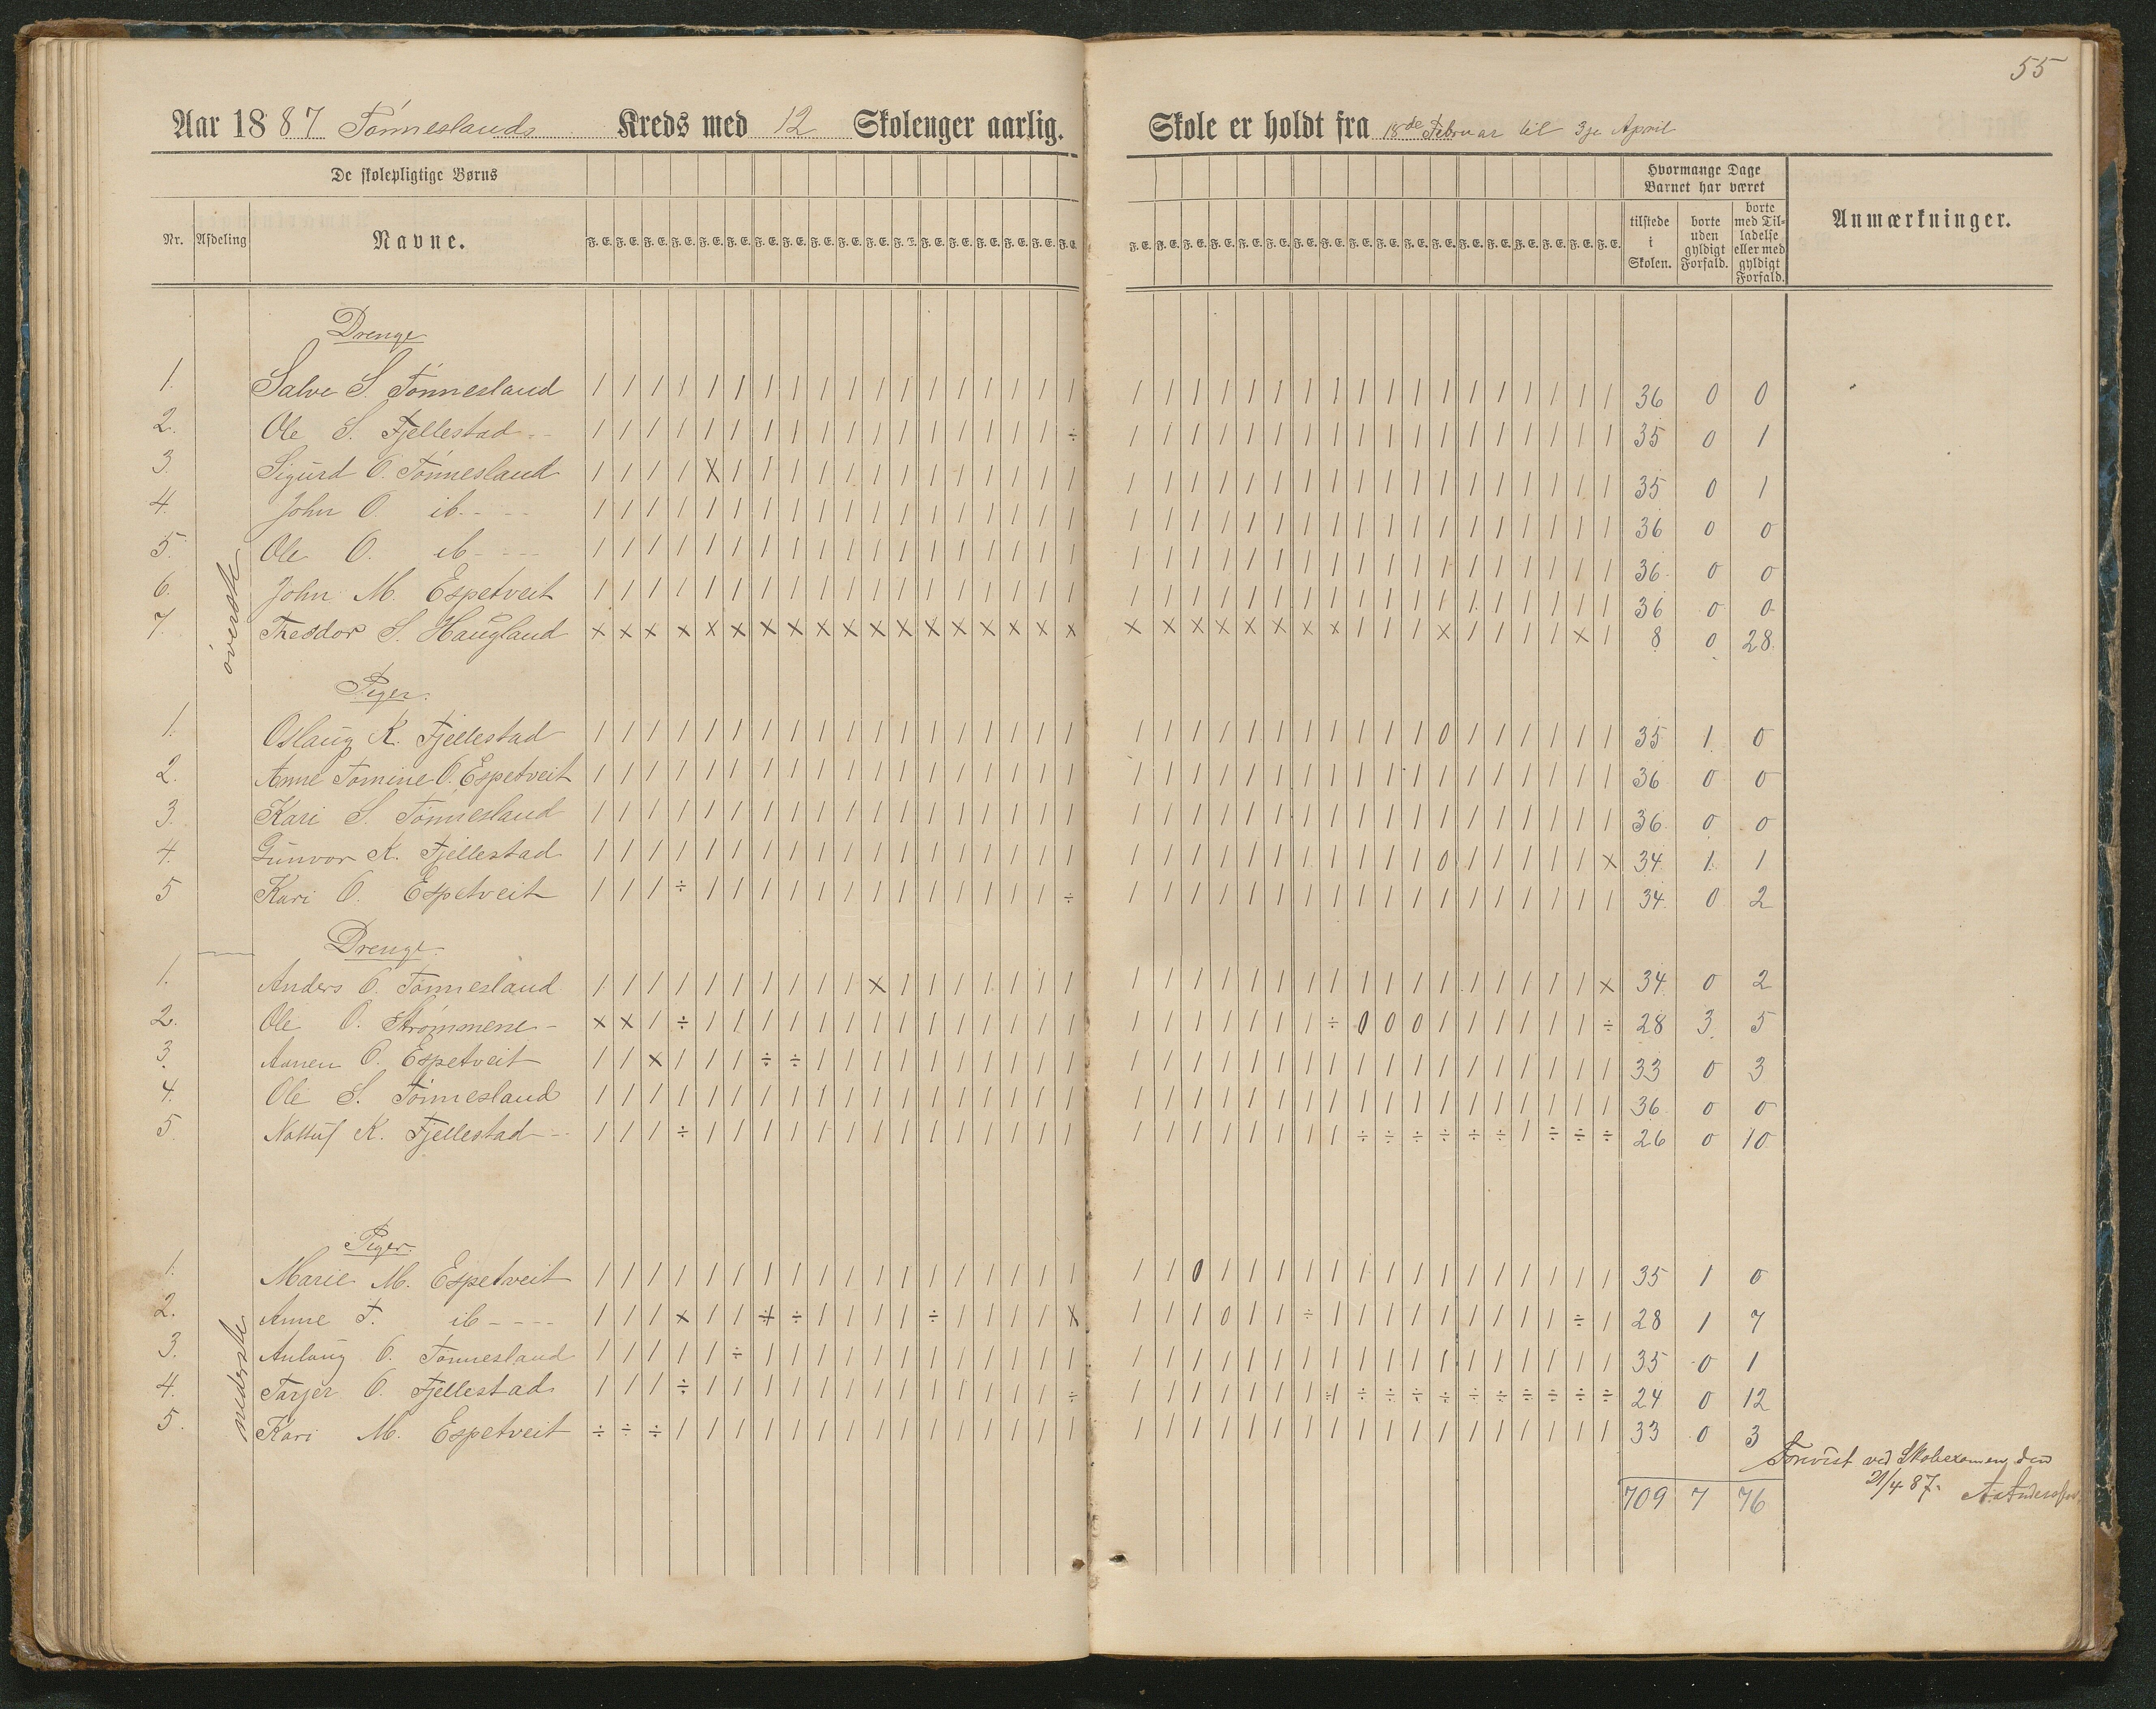 55
Aar 1887 Tónneslands Kreds med 12 Skoleuger aarlig. Skole er holdt fra 18de Februar til 3je April
De skolepligtige Børns
Hvormange Dage Barnet har været
Nr. Afdeling Navne. F. E. F. E. F. E. F. E. F. E. F. E. F. E. F. E. F. E. F. E. F. E. F. E. F. E. F. E. F. E. F. E. F. E. F. E. F. E. F. E. F. E. F. E. F. E. F. E. F. E. F. E. F. E. F. E. F. E. F. E. F. E. F. E. F. E. F. E. F. E. F. E. tilstede i Skolen. borte uden gyldigt Forfald. borte med Tilladelse eller med gyldigt Forfald. Anmærkninger.
Drenge
1. Salve S. Tónnesland / / / / / / / / / / / / / / / / / / / / / / / / / / / / / / / / / / / / 36 0 0
2. Ole S. Fjellestad / / / / / / / / / / / / / / / / / ÷ / / / / / / / / / / / / / / / / / / 35 0 1
3. Sigurd O. Tónnesland / / / / X / / / / / / / / / / / / / / / / / / / / / / / / / / / / / / / 35 0 1
4. John O. ib. - - - / / / / / / / / / / / / / / / / / / / / / / / / / / / / / / / / / / / / 36 0 0
5. Ole O. ib - - - / / / / / / / / / / / / / / / / / / / / / / / / / / / / / / / / / / / / 36 0 0
6. John M. Espetveit / / / / / / / / / / / / / / / / / / / / / / / / / / / / / / / / / / / / 36 0 0
7. Theodor S. Haugland x x x x x x x x x x x x x x x x x x x x x x x x x x / / / x / / / / x / 8 0 28
óverste
Piger.
1. Oslaug K. Fjellestad / / / / / / / / / / / / / / / / / / / / / / / / / / / / / 0 / / / / / / 35 1 0
2. Anne Tomine O. Espetveit / / / / / / / / / / / / / / / / / / / / / / / / / / / / / / / / / / / / 36 0 0
3. Kari S. Tónnesland / / / / / / / / / / / / / / / / / / / / / / / / / / / / / / / / / / / / 36 0 0
4. Gunvor K. Fjellestad / / / / / / / / / / / / / / / / / / / / / / / / / / / / / 0 / / / / / x 34 1 1
5 Kari O. Espetveit / / / ÷ / / / / / / / / / / / / / ÷ / / / / / / / / / / / / / / / / / / 34 0 2
Drenge.
1. Anders O. Tónnesland / / / / / / / / / / x / / / / / / / / / / / / / / / / / / / / / / / / x 34 0 2
2. Ole O. Strómmene - x x / ÷ / / / / / / / / / / / / / / / / / / / / / ÷ 0 0 0 / / / / / / ÷ 28 3 5
3. Aanen O. Espetveit / / x / / / ÷ ÷ / / / / / / / / / / / / / / / / / / / / / / / / / / / / 33 0 3
4. Ole S. Tónnesland / / / / / / / / / / / / / / / / / / / / / / / / / / / / / / / / / / / / 36 0 0
5. K. Fjellestad - / / / ÷ / / / / / / / / / / / / / / / / / / / / / / ÷ ÷ ÷ ÷ ÷ ÷ / ÷ ÷ ÷ 26 0 10
Piger.
1. Marie M. Espetveit / / / / / / / / / / / / / / / / / / / / 0 / / / / / / / / / / / / / / / 35 1 0
2. Anne T. ib - - - - / / / x / / ÷ ÷ / / / / ÷ / / / / X / / / 0 / / ÷ / / / / / / / / / ÷ / 28 1 7
3. Aulaug O. Tónnesland / / / / / ÷ / / / / / / / / / / / / / / / / / / / / / / / / / / / / / / 35 0 1
4. Tarjer O. Fjellestad / / / ÷ / / / / / / / / / / / / / ÷ / / / / / / / ÷ ÷ ÷ ÷ ÷ ÷ ÷ ÷ ÷ ÷ ÷ 24 0 12
5. Kari M. Espetveit ÷ ÷ ÷ / / / / / / / / / / / / / / / / / / / / / / / / / / / / / / / / / 33 0 3
nederste
Forevist ved Skoleexamen den
21/4 87. A. Anderssen
709 7 76